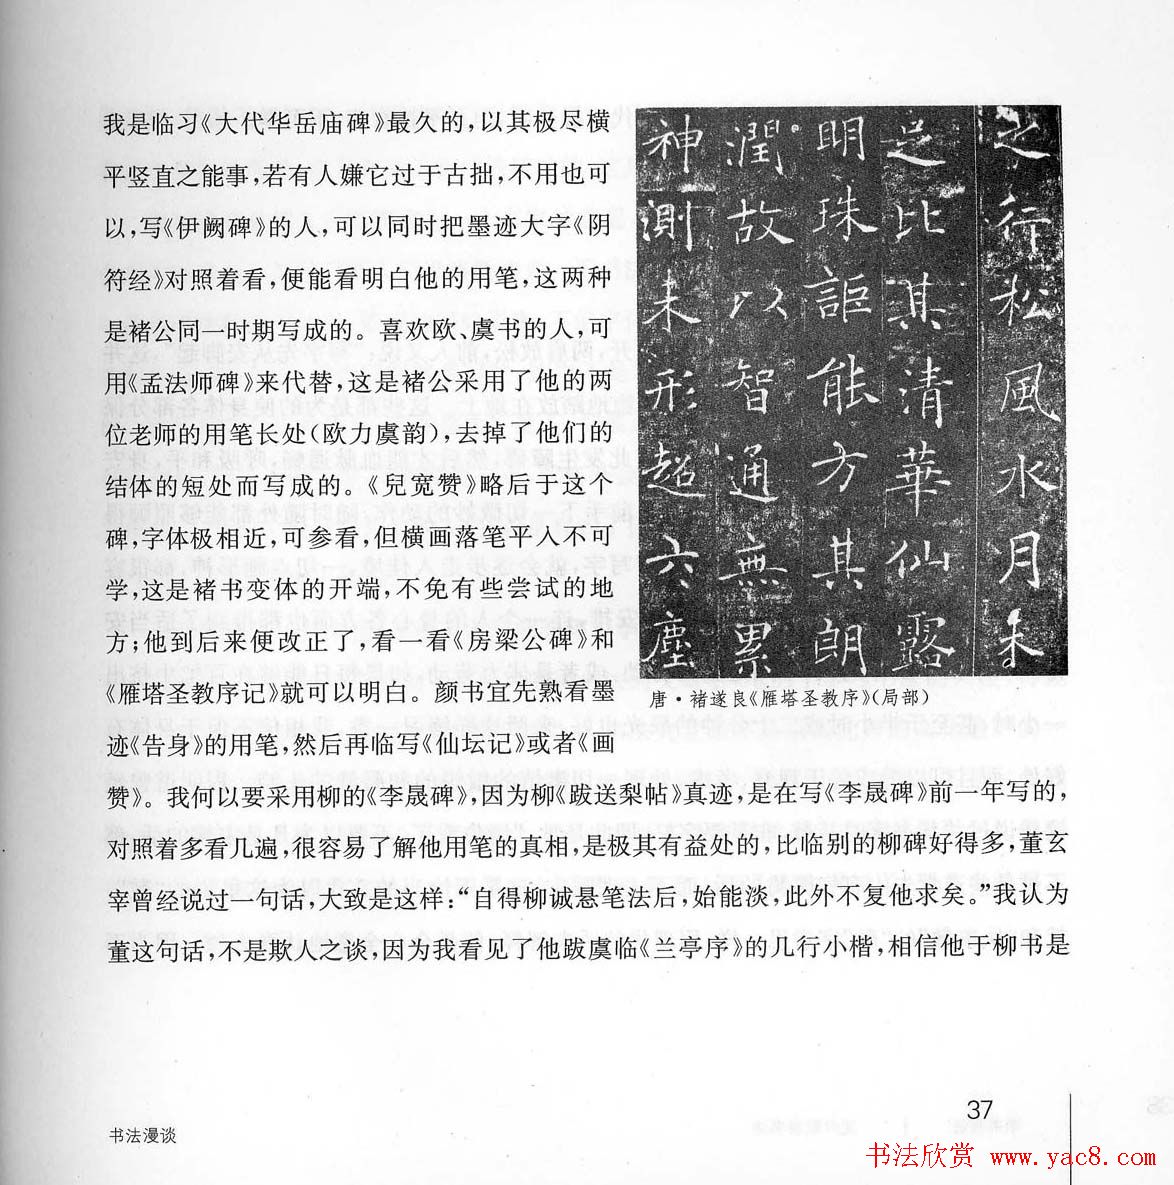 我是临习《大代华岳庙碑》最久的，以其极尽横
平竖直之能事，若有人嫌它过于古拙，不用也可
以，写《伊阙碑》的人，可以同时把墨迹大字《阴
符经》对照着看，便能看明白他的用笔，这两种
是褚公同一时期写成的。喜欢欧、虞书的人，可
用《孟法师碑》来代替，这是褚公采用了他的两
位老师的用笔长处（欧力虞韵），去掉了他们的
结体的短处而写成的。《兒宽赞》略后于这个
碑，字体极相近，可参看，但横画落笔平人不可
学，这是褚书变体的开端，不免有些尝试的地
方；他到后来便改正了，看一看《房梁公碑》和
《雁塔圣教序记》就可以明白。颜书宜先熟看墨
迹《告身》的用笔，然后再临写《仙坛记》或者《画
赞》。我何以要采用柳的《李晟碑》，因为柳《跋送梨帖》真迹，是在写《李晟碑》前一年写的，
对照着多看几遍，很容易了解他用笔的真相，是极其有益处的，比临别的柳碑好得多，董玄
宰曾经说过一句话，大致是这样：“自得柳诚悬笔法后，始能淡，此外不复他求矣。”我认为
董这句话，不是欺人之谈，因为我看见了他跋虞临《兰亭序》的几行小楷，相信他于柳书是
之行松風水月未
足比其清華仙露
明珠詎能方其朗
潤故以智通無累
神測未形超六塵
唐·褚遂良《雁塔圣教序》（局部）
37
书法漫谈
书法欣赏 www.yac8.com